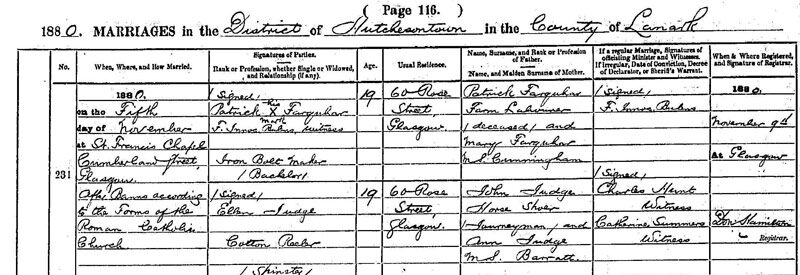 ( Page 116. )
1880. MARRIAGES in the District of Hutchesontown in the County of Lanark
No.
When, Where, and How Married.
Signatures of Parties.
Rank or Profession, whether Single or Widowed, and Relationship (if any).
Age.
Usual Residence.
Name, Surname, and Rank or Profession of Father.
Name, and Maiden Surname of Mother.
If a regular Marriage, Signatures of officiating Minister and Witnesses.
If irregular, Date of Conviction, Decree of Declarator, or Sheriff's Warrant.
When & Where Registered, and Signature of Registrar.
231
1880.
on the Fifth
day of November
at St. Francis Chapel
Cumberland Street,
Glasgow.
After Banns according
to the Forms of the
Roman Catholic
Church
(Signed)
Patrick X Farquhar
his
mark
F. Innos Witness
Iron Bolt Maker
(Bachelor)
(Signed)
Ellen Judge
Cotton Reeler
(Spinster)
19
19
60 Rose
Street,
Glasgow
60 Rose
Street,
Glasgow.
Patrick Farquhar
Farm Labourer
(deceased) and
Mary Farquhar
M.S. Cunningham
John Judge
Horse Shoer
(Journeyman) and
Ann Judge
M.S. Barratt
(Signed)
F. Innos
(Signed)
Charles Hunt
Witness
Catherine Summers
Witness
1880.
November 9th
At Glasgow
Hamilton
Registrar.